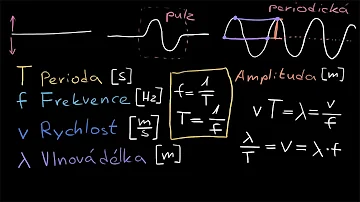 pulz
periodická
T Perioda [s]
f Frekvence [Hz]
v Rychlost [m/s]
λ Vlnová délka [m]
f = 1/T
T = 1/f
Amplituda [m]
vT = λ = v/f
λ/T = v = λ·f